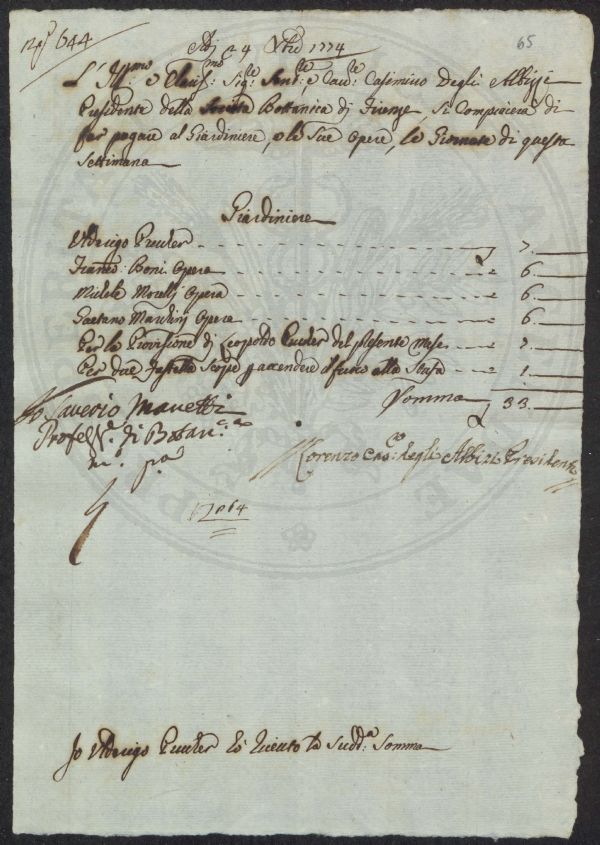 644
65
Adì 24 Xbre 1774
L'Ill:mo e Clariss:mo Sig:re Sen:re e Cav:re Casimiro degli Albizzi
Presidente della Società Bottanica di Firenze, Si Compiacerà di
far pagare al Giardiniere, e le Sue Opere, le Giornate di questa
Settimana
Giardiniere
Ulderigo Pruker 7.
Franco: Boni Opera 6.
Michele Opera 6.
Gaetano Opera 6.
Per la Provisione di Leopoldo Pruker del presente Mese
Per due Scope p accendere il fuoco alla Stufa 1.
Somma 33.
Io Saverio Manetti
Profes:e di Botan:ca
m:o pa
Lorenzo Cas:o degli Albizi Presidente
Io Ulderigo Pruker hò riceuto la Sudd:a Somma